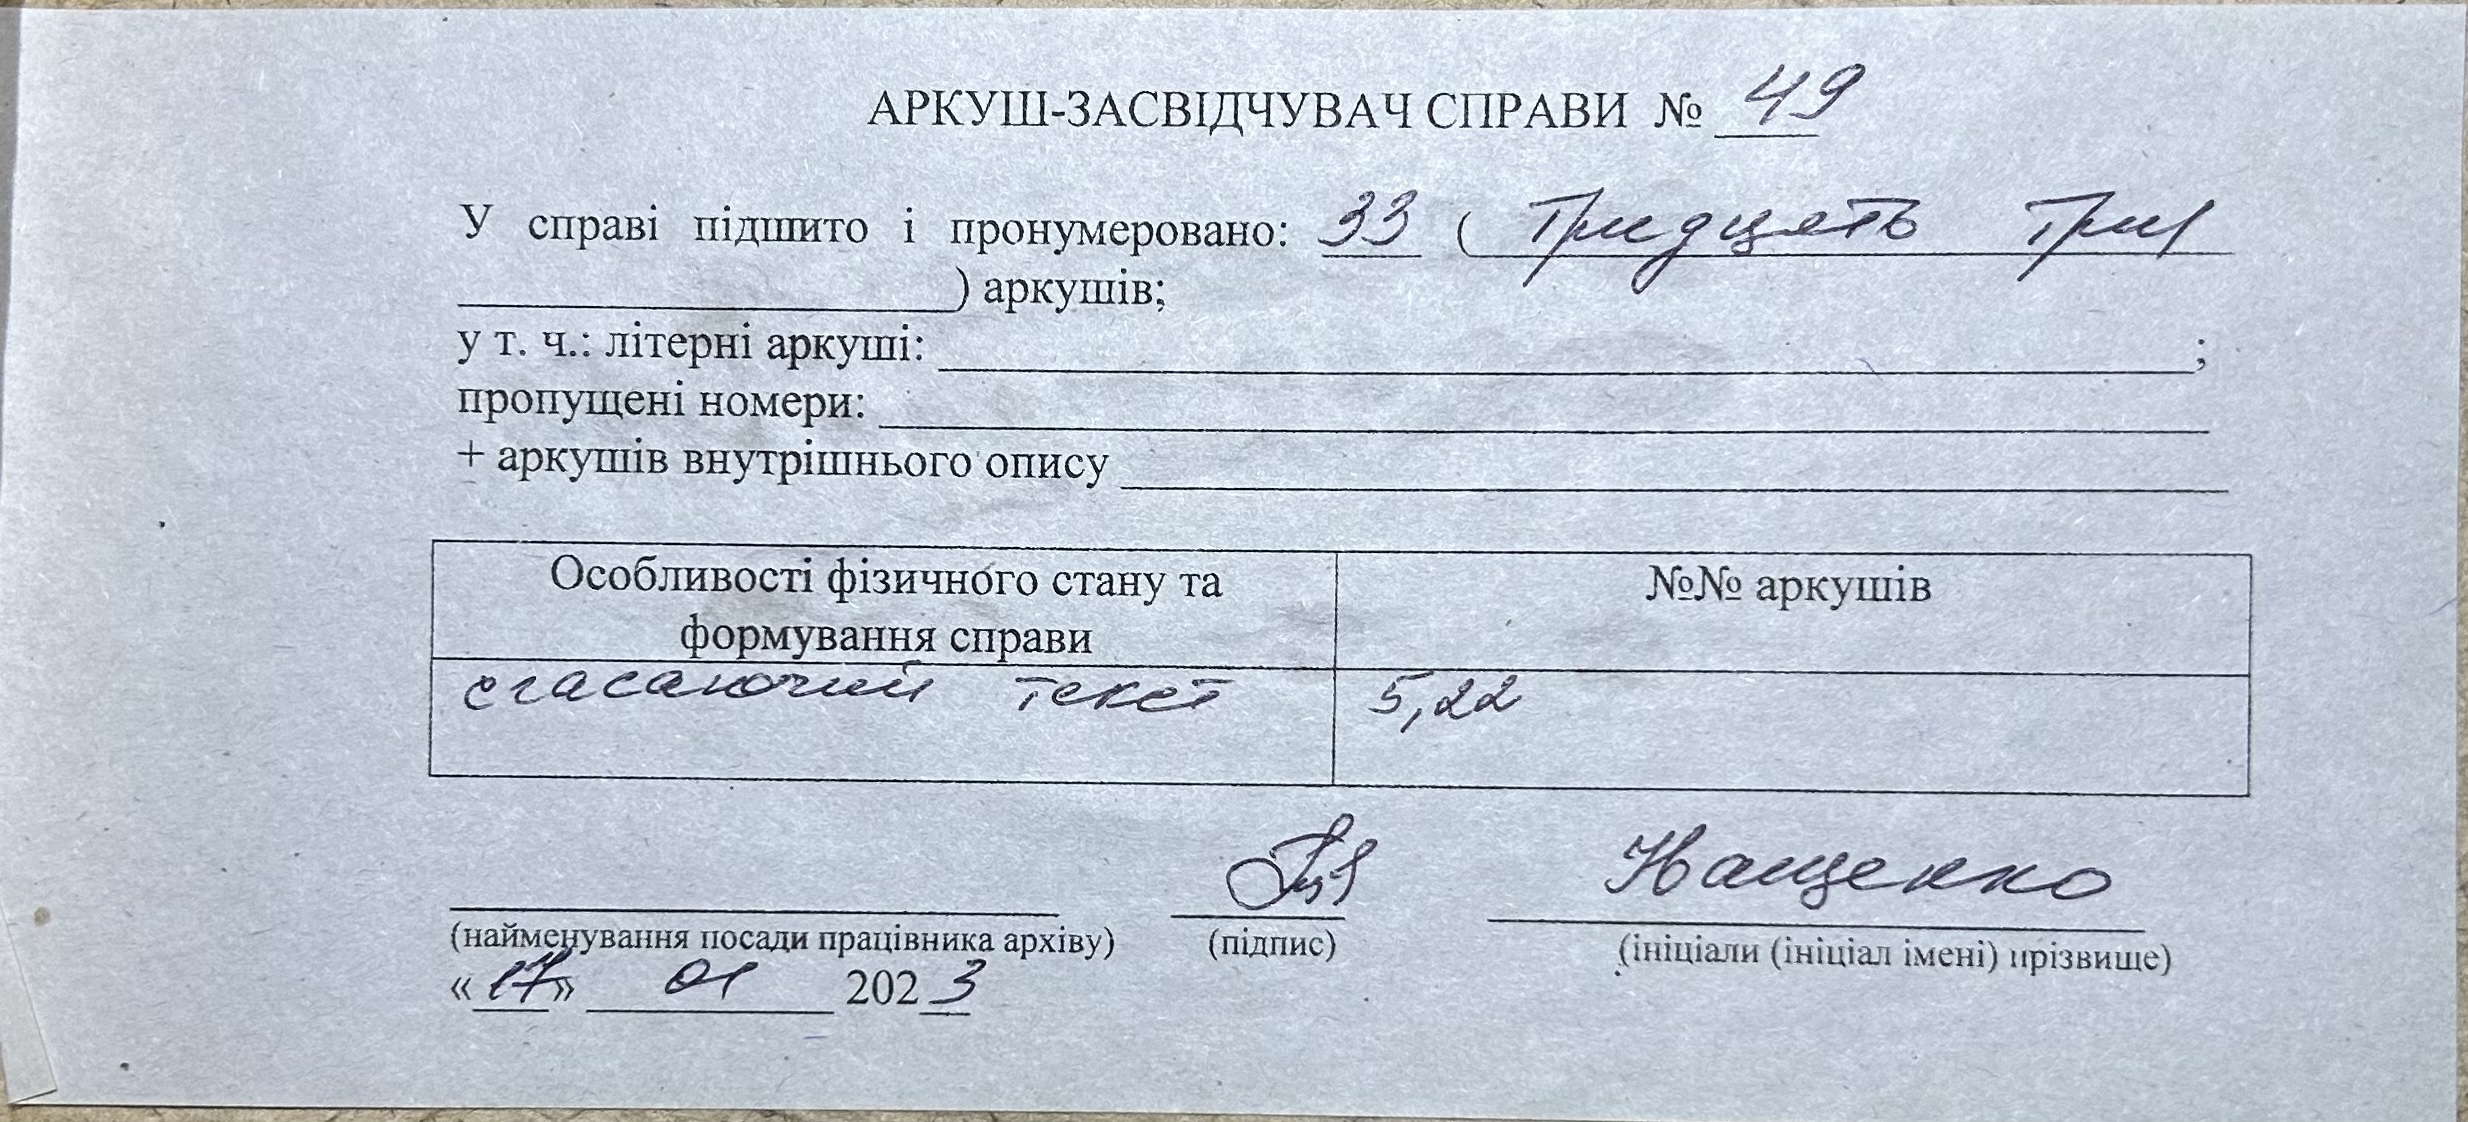 АРКУШ-ЗАСВІДЧУВАЧ СПРАВИ № 49
У справі підшито і пронумеровано: 33 ( Тридцять три
) аркушів;
у т. ч.: літерні аркуші: ;
пропущені номери:
+ аркушів внутрішнього опису
Особливості фізичного стану та формування справи
№№ аркушів
згасаючий текст
5,22
Нащенко
(найменування посади працівника архіву) (підпис) (ініціали (ініціал імені) прізвище)
«17» 01 2023